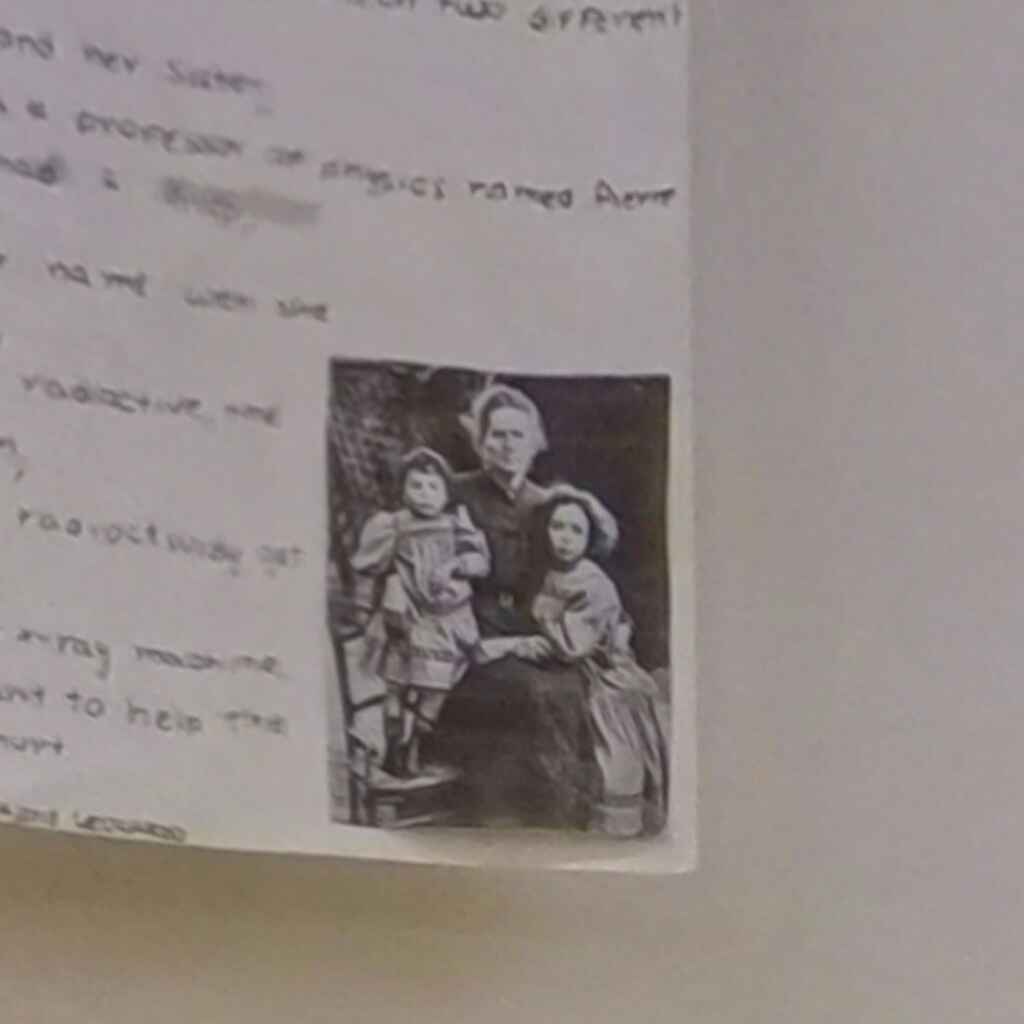 two different
and her sister
a professor of physics named Pierre
a
name when she
radiactive and
radioactividy get
x-ray machine
to help the
hurt